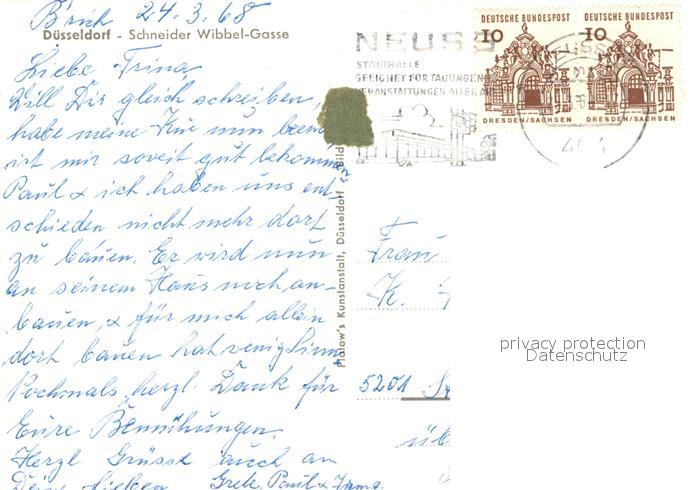 B'rich 24.3.68
Düsseldorf - Schneider Wibbel-Gasse
Liebe Trina
Will Dir gleich schreiben,
habe meine Kur nun been
ist mir soweit gut bekommen,
Paul & ich haben uns ent-
schieden nicht mehr dort
zu bauen. Er wird nun
an seinem Haus noch an-
bauen, & für mich allein
dort bauen hat wenig Sinn
Nochmals herzl. Dank für
Eure Bemühungen.
Herzl Grüsse auch an
Deine Lieben Grete, Paul &
Platow's Kunstanstalt, Düsseldorf Bild
NEUSS
STADTHALLE
GEEIGNET FÜR TAGUNGEN
VERANSTALTUNGEN ALLER
DEUTSCHE BUNDESPOST
10
DRESDEN/SACHSEN
DEUTSCHE BUNDESPOST
10
DRESDEN/SACHSEN
404
Frau
K.
5201
üb
privacy protection
Datenschutz